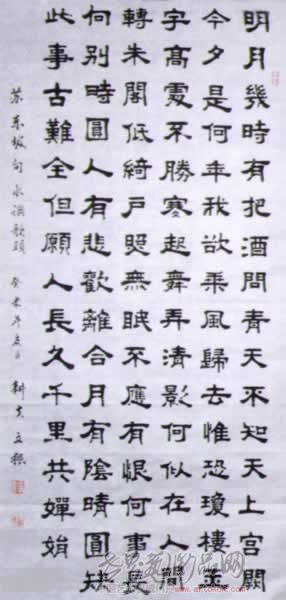 明月幾時有把酒問青天不知天上宮闕
今夕是何年我欲乘風歸去惟恐瓊樓玉
宇高處不勝寒起舞弄清影何似在人間
轉朱閣低綺戶照無眠不應有恨何事長
向別時圓人有悲歡離合月有陰晴圓缺
此事古難全但願人長久千里共嬋娟
苏东坡句水調歌頭 癸未年 耕夫立